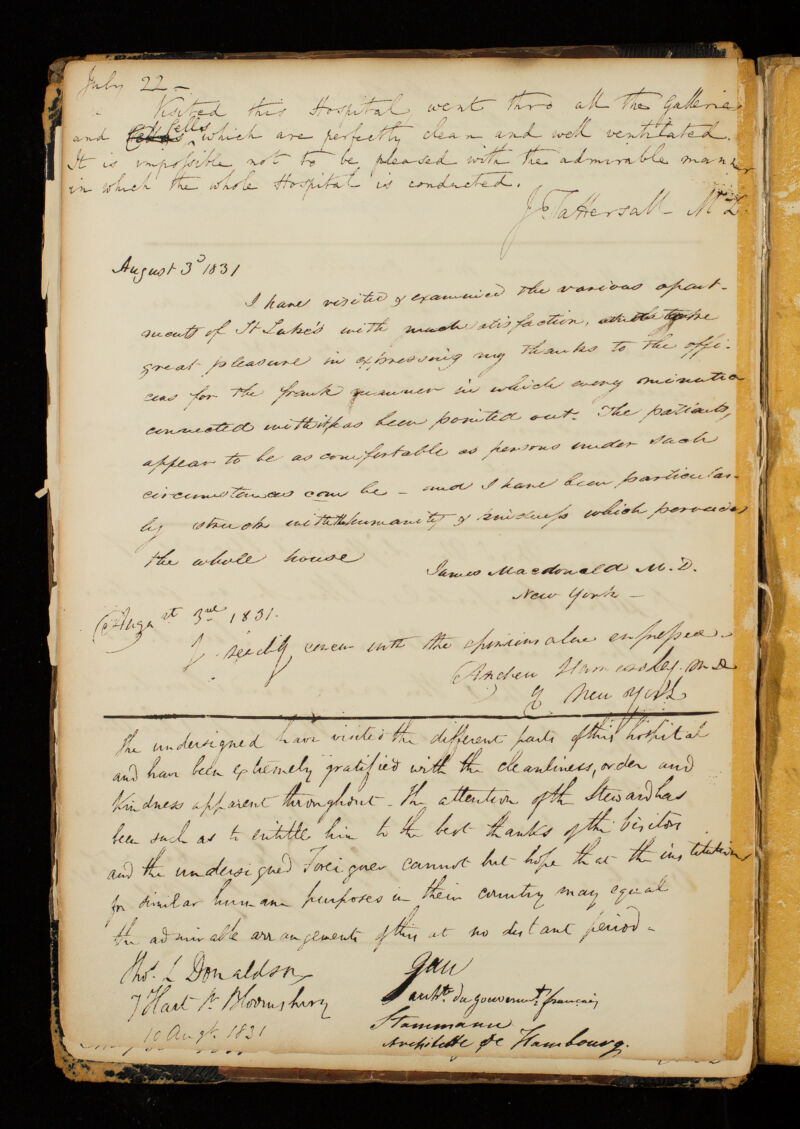 July 22 –
Visited this Hospital, went thro all the Galleries
and cells which are perfectly clean and well ventilated.
It is impossible not to be pleased with the admirable manner
in which the whole Hospital is conducted.
J. Tattersall M D.
August 3d 1831
I have visited & examined the various apart-
ments of St Luke's with much satisfaction,
great pleasure in expressing my thanks to the offi-
cers for the frank manner in which every minutia
connected with it has been pointed out. The patients,
appear to be as comfortable as persons under such
circumstances can be – and I have been particular-
ly struck with the humanity & kindness which pervades
the whole house
James Macdonald M.D.
New York –
August 3rd 1831.
I readily concur with the opinions above expressed –
Andrew M D
of New York
The undersigned have visited the different parts of this hospital
and have been extremely gratified with the cleanliness, order and
kindness apparent throughout – The attention of the Steward has
been such as to entitle him to the best thanks of the Visitors
and the undersigned Foreigners cannot but hope that the institutions
for similar humane purposes in their country may equal
the admirable arrangements of this at no distant period –
Thos. L Donaldson
7 Hart St Bloomsbury
10 Augt. 1831
Gau
archte. du gouvernemt. français
Stammann
Architecte de Hambourg.